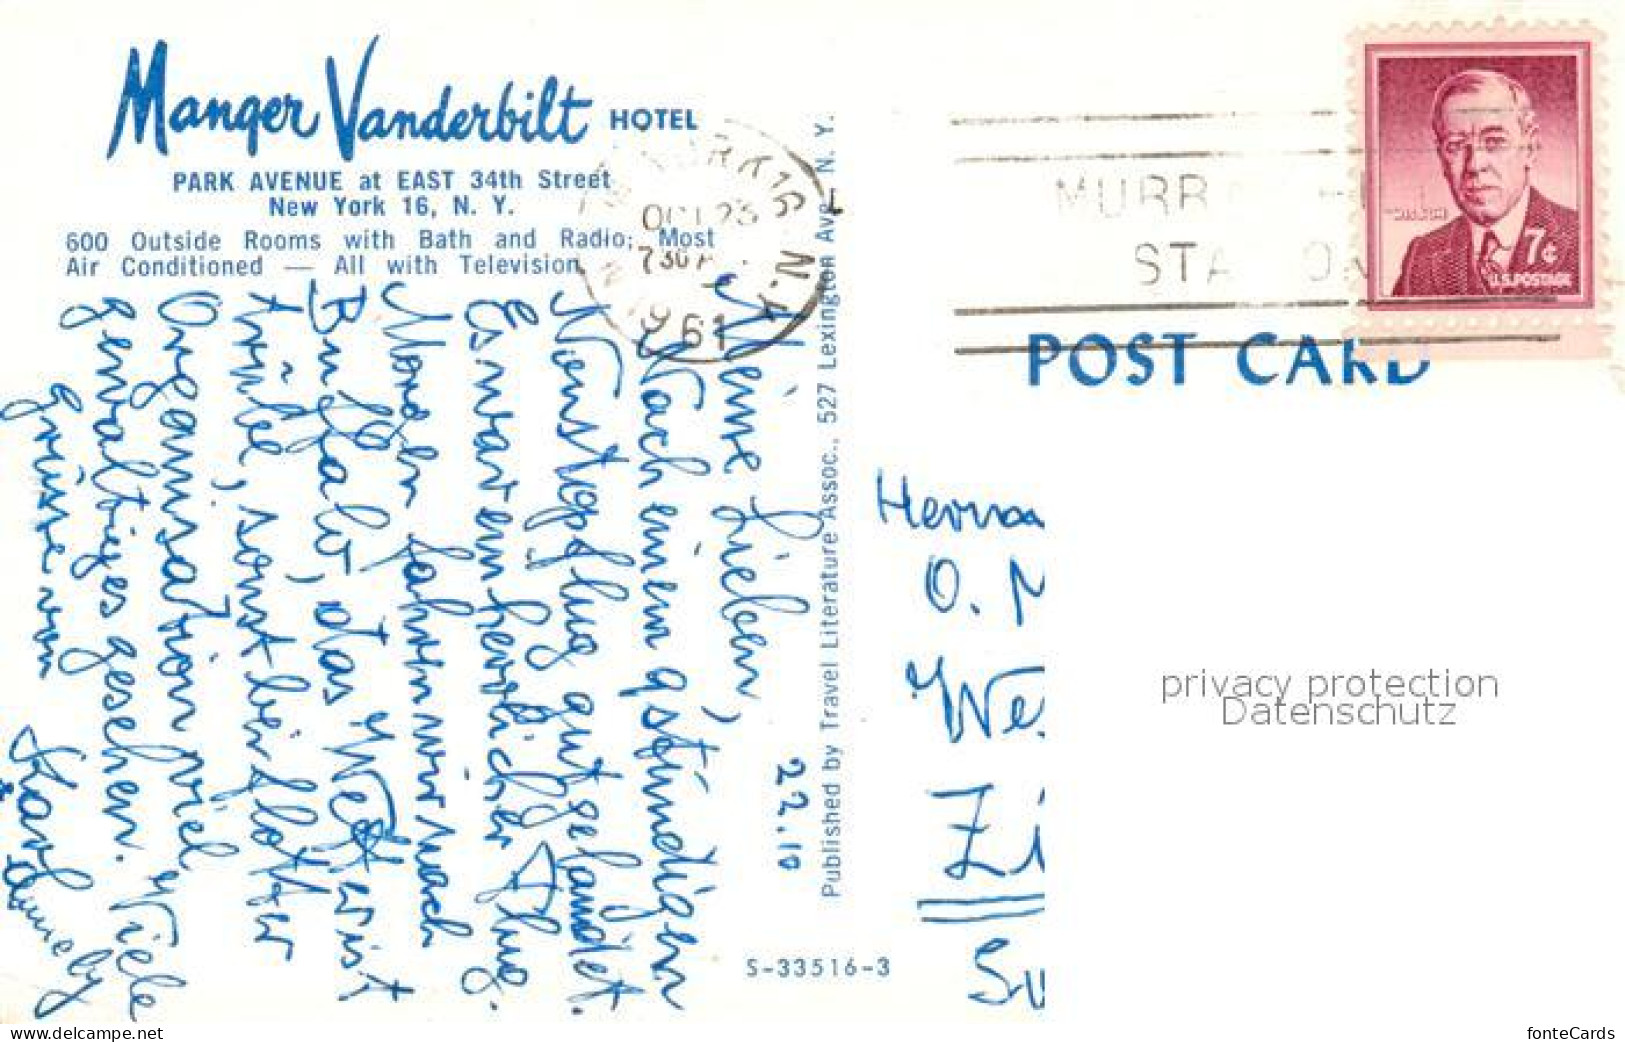 Manger Vanderbilt HOTEL
PARK AVENUE at EAST 34th Street
New York 16, N. Y.
600 Outside Rooms with Bath and Radio; Most
Air Conditioned — All with Television
22.10
Meine Lieben,
Nach einem 9stündigen
Nonstopflug gut gelandet.
Es war ein herrlicher Flug.
Morgen fahren wir nach
Buffalo, das Wetter ist
trübe, sonst bei flotter
Organisation viel
gewaltiges gesehen. Viele
Grüsse von
Karl
Published by Travel Literature Assoc., 527 Lexington Ave., N. Y.
S-33516-3
YORK 16 N.Y.
OCT 23
7 30 A
1961
MURR
STA ON
7¢
U.S. POSTAGE
POST CARD
O.
We
Zü
privacy protection
Datenschutz
www.delcampe.net
fonteCards